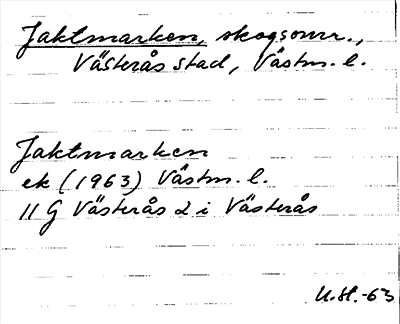 Jaktmarken, skogsomr.,
Västerås stad, Västm. l.
Jaktmarken
ek (1963) Västm. l.
11 G Västerås d i Västerås
U.H.-63